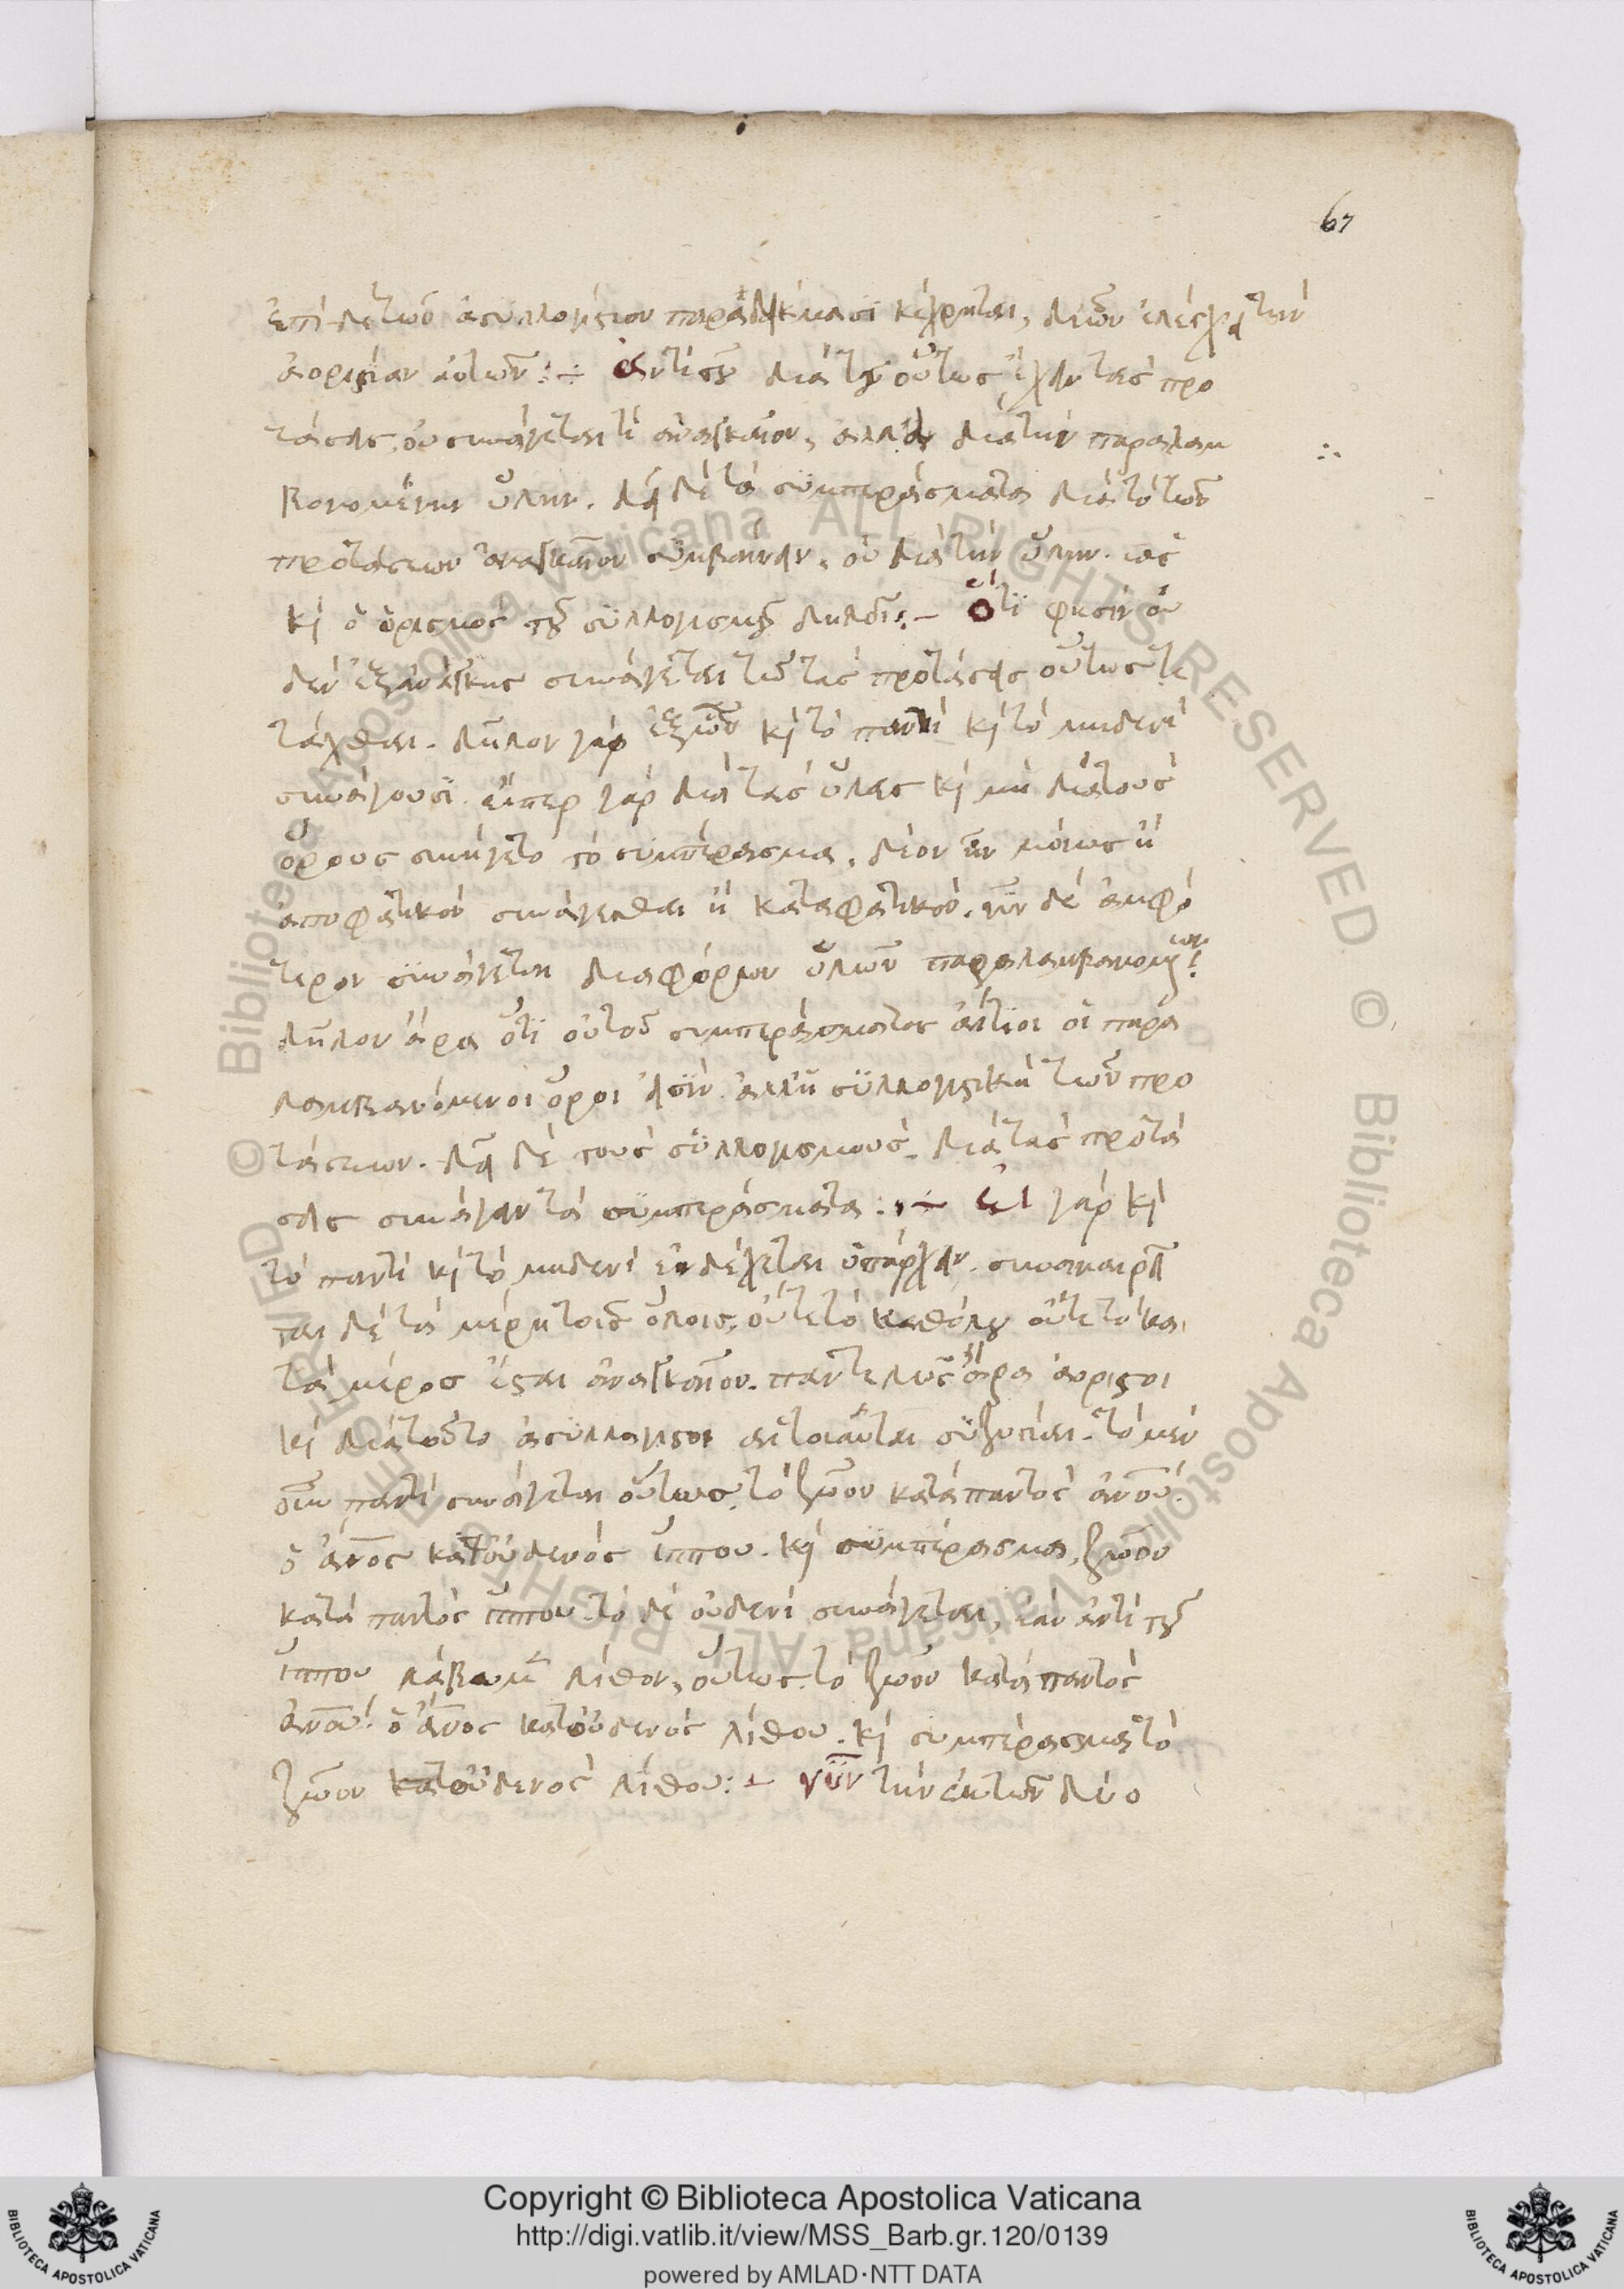 67
ἐπὶ δὲ τῶν ἀσυλλογίστων παραδείγμασι κέχρηται, δι' ὧν ἐλέγχει τὴν
ἀοριστίαν αὐτῶν :- ἀντὶ τοῦ διὰ τοῦ οὕτως ἔχειν τὰς προ
τάσεις, οὐ συνάγεταί τι ἀναγκαῖον, ἀλλ' ἢ διὰ τὴν παραλαμ
βανομένην ὕλην. δεῖ δὲ τὰ συμπεράσματα διὰ τὸ τῶν
προτάσεων ἀναγκαῖον συμβαίνειν, οὐ διὰ τὴν ὕλην. ὡς
κ(αὶ) ὁ ὁρισμὸς τοῦ συλλογισμοῦ δηλοῖ :- Ὅτι φησὶν οὐ
δὲν ἐξ ἀνάγκης συνάγεται τῷ τὰς προτάσεις οὕτως τε
τάχθαι. δῆλον γὰρ ἐξ ὧν κ(αὶ) τὸ παντὶ κ(αὶ) τὸ μηδενὶ
συνάγουσι. εἴπερ γὰρ διὰ τὰς ὕλας κ(αὶ) μὴ διὰ τοὺς
ὅρους συνήγετο τὸ συμπέρασμα, δέον ἦν μόνως ἢ
ἀποφατικὸν συνάγεσθαι ἢ καταφατικόν. νῦν δὲ ἀμφό
τερον συνάγεται διαφόρων ὑλῶν παραλαμβανομένων.
δῆλον ἄρα ὅτι οὐ τοῦ συμπεράσματος αἴτιοι οἱ παρα
λαμβανόμενοι ὅροι εἰσὶν ἀλλ' ἢ συλλογιστικὴ τῶν προ
τάσεων. δεῖ δὲ τοὺς συλλογισμοὺς διὰ τὰς προτά
σεις συνάγειν τὰ συμπεράσματα :- εἰ γὰρ κ(αὶ)
τὸ παντὶ κ(αὶ) τὸ μηδενὶ ἐνδέχεται ὑπάρχειν. συναναιρεῖ
ται δὲ τὰ μέρη τοῖς ὅλοις, οὔτε τὸ καθόλου οὔτε τὸ κα
τὰ μέρος ἔσται ἀναγκαῖον. παντελῶς ἄρα ἀόριστοι
κ(αὶ) διὰ τοῦτο ἀσυλλόγιστοι αἱ τοιαῦται συζυγίαι. τὸ μὲν
οὖν παντὶ συνάγεται οὕτως, τὸ ζῶον κατὰ παντὸς ἀνου.
ὁ ἄνος κατ' οὐδενὸς ἵππου. κ(αὶ) συμπέρασμα, ζῶον
κατὰ παντὸς ἵππου. τὸ δὲ οὐδενὶ συνάγεται, ἐὰν ἀντὶ τοῦ
ἵππου λάβωμεν λίθον, οὕτως. τὸ ζῶον κατὰ παντὸς
ἀνου. ὁ ἄνος κατ' οὐδενὸς λίθου. κ(αὶ) συμπέρασμα, τὸ
ζῶον κατ' οὐδενὸς λίθου :- νῦν τὴν ἐκ τῶν δύο
Copyright © Biblioteca Apostolica Vaticana
http://digi.vatlib.it/view/MSS_Barb.gr.120/0139
powered by AMLAD·NTT DATA